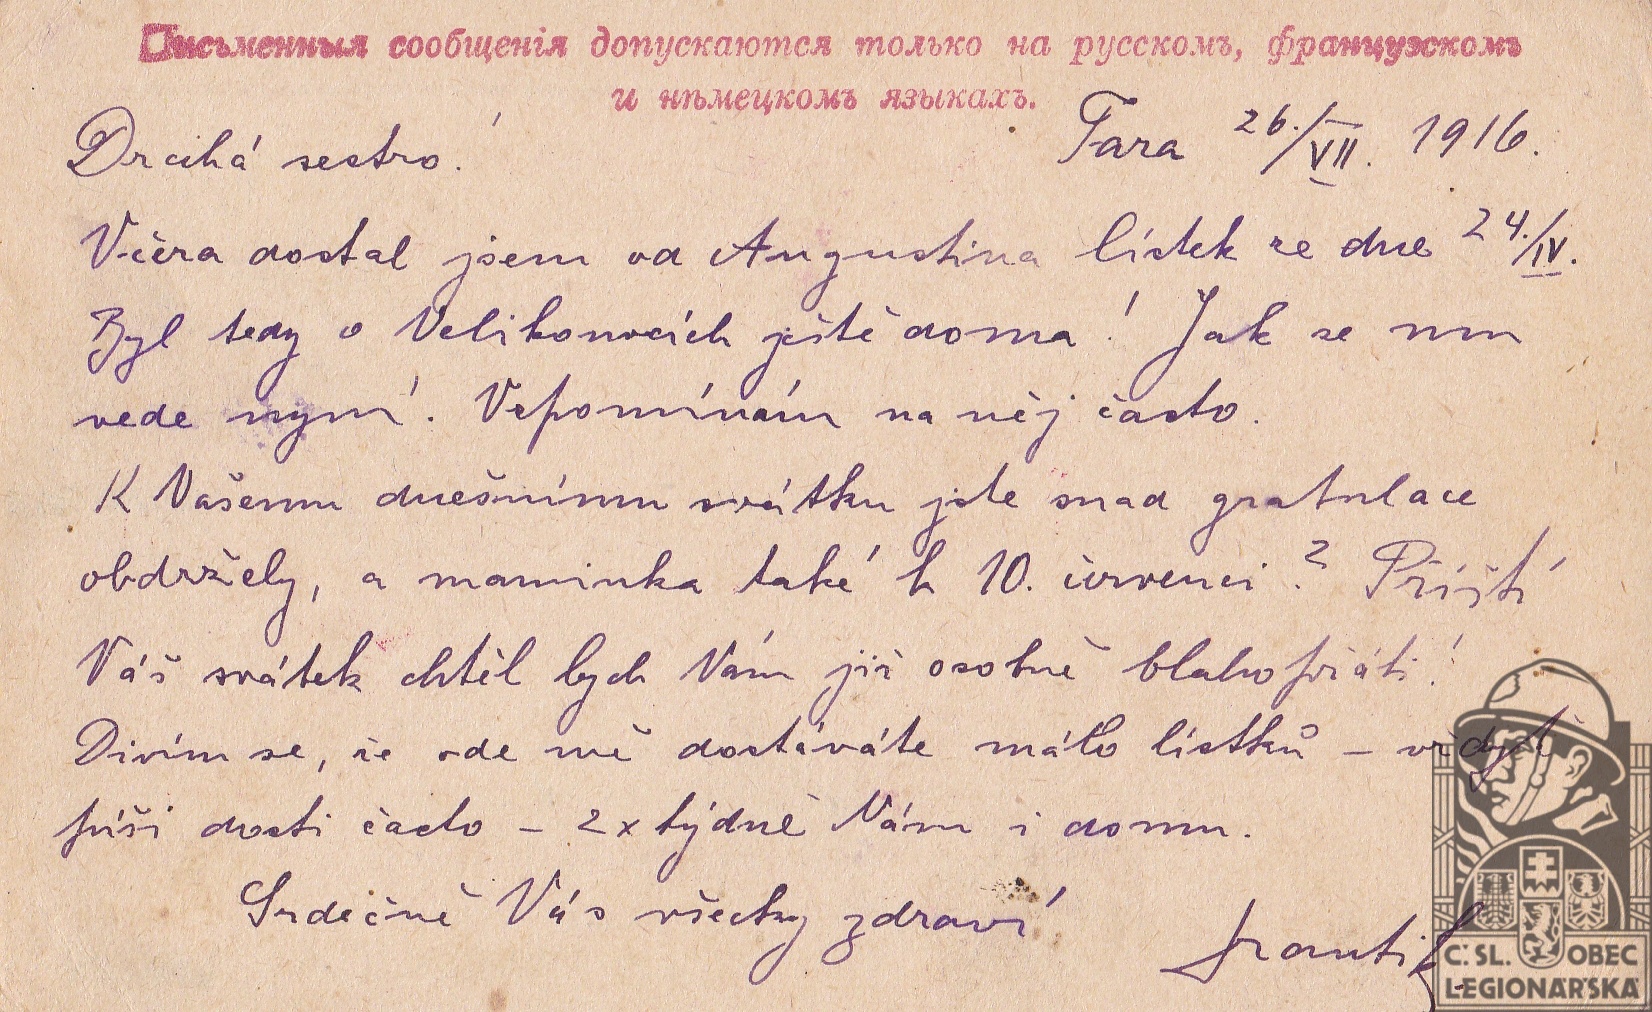 Письменныя сообщенія допускаются только на русскомъ, французскомъ
и нѣмецкомъ языкахъ.
Drahá sestro! Tara 26./VII. 1916.
Včera dostal jsem od Augustina lístek ze dne 24./IV.
Byl tedy o Velikonocích ještě doma! Jak se mu
vede nyní. Vzpomínám na něj často.
K Vašemu dnešnímu svátku jste snad gratulace
obdržely, a maminka také k 10. červenci? Příští
Váš svátek chtěl bych Vám již osobně blahopřáti!
Divím se, že ode mě dostáváte málo lístků – vždyť
píši dosti často – 2x týdně Vám i domu.
Srdečně Vás všecky zdraví
Frantík
Č. SL. OBEC
LEGIONÁŘSKÁ